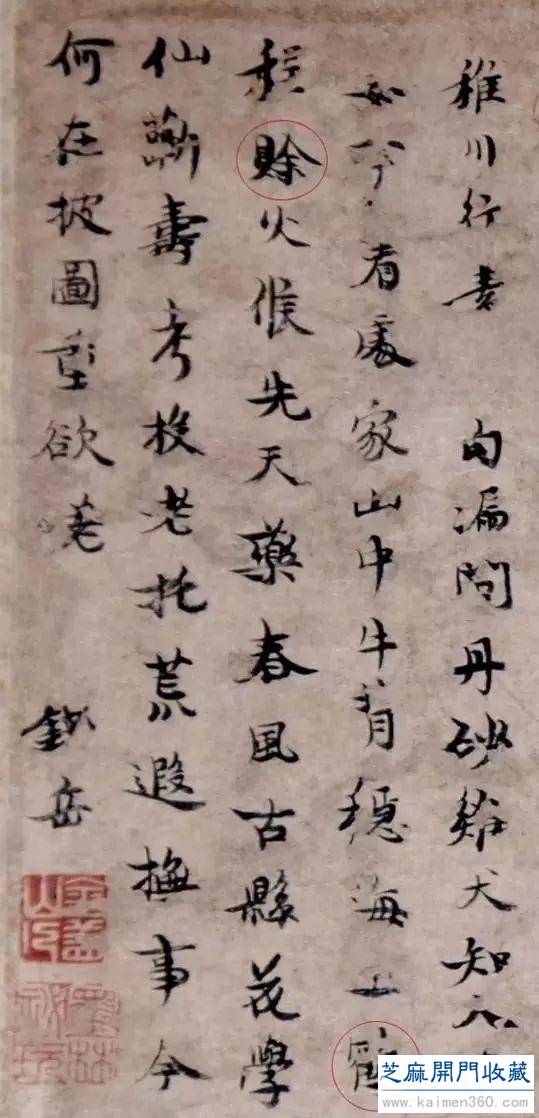 稚川行 句漏問丹砂雞犬知
如今看處家山中牛背穩海上鶴
程賒火候先天藥春風古縣花學
仙蘄壽考投老托荒遐撫事今
何在披圖重欲嗟
岳
芝麻開門收藏
www.kaimen360.com